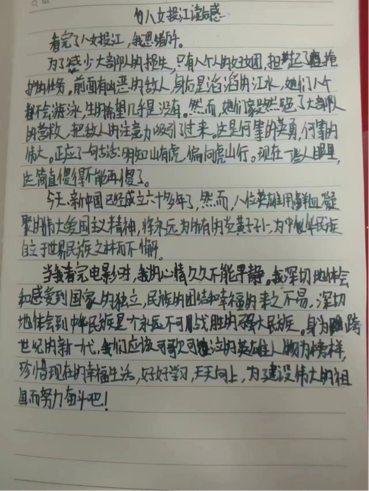 《八女投江》观后感
看完了八女投江,我思绪万千。
为了减少大部队的牺牲,只有八个人的妇女团,担起了掩
护的任务,前面有凶恶的敌人,身后是滔滔的江水,她们八个
都不会游泳,生的希望几乎是没有。然而,她们家毅然
的营救,把敌人的注意力吸引了过来。这是何等的英勇,何等的
伟大。正应了一句古话:明知山有虎,偏向虎山行。现在一些人眼里,
这简直傻得不能再傻了。
今天,新中国已经成立六十多年了,然而,八位英雄用鲜血凝
聚的伟大爱国主义精神,将永远为所有的炎黄子孙,为中华民族
自立于世界民族之林而不懈。
当我看完电影时,我的心情久久不能平静。我深切地体会
和感受到国家的独立,民族的团结和幸福的来之不易,深切
地体会到中华民族是一个永远不可战胜的强大民族。身为跨
世纪的新一代,我们应该可歌可泣的英雄人物为榜样,
珍惜现在的幸福生活,好好学习,天天向上,为了建设伟大的祖
国而努力奋斗吧!